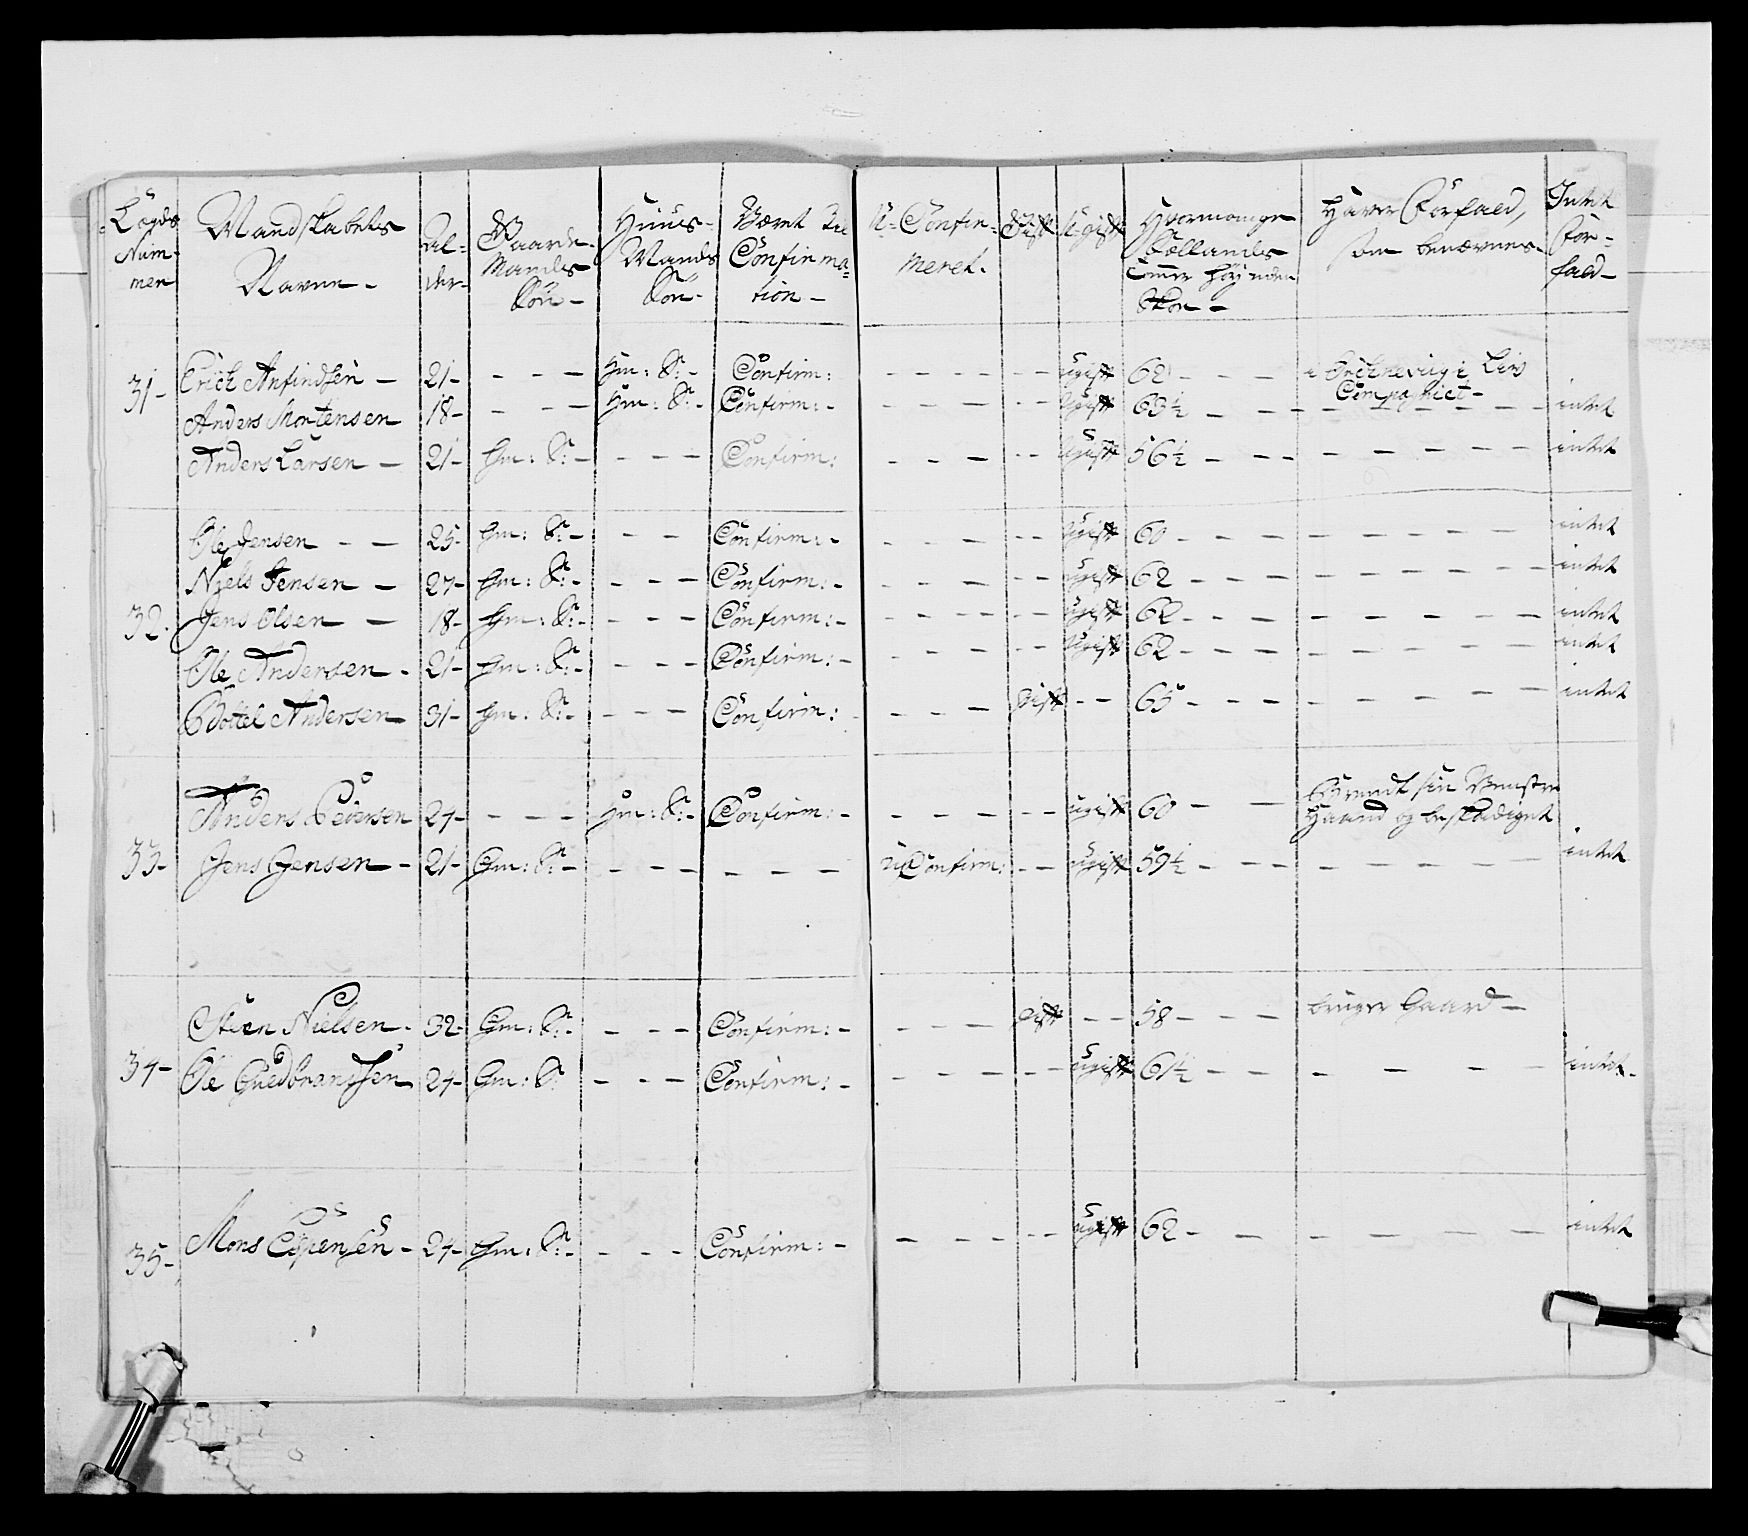 Lægds Num- mer | Mandskabets Navne - | Al- der- | Gaarde- Mands Søn - | Huus- Mands Søn - | Været til Confirma- tion - | U-Confir- meret. | Gift | Ugift | Hvormange Sællands Tomer Høj uden Skoe - | Haver Forfald, som benævnes - | Intet For- fald -
31- Erich Anfindsen - 21- - - - Hm: S:- Confirm: - - - - - - ugift 62 - - - i Livcompagniet
Anders Mortensen 18- - - - Hm: S:- Confirm:- - - - - - - Ugift 63½ - - - - - - - intet
Anders Larsen - 21- Gm: S:- - - - Confirm: - - - - - Ugift 56½ - - - - - - - intet
Ole Jensen - - 25- Gm: S:- - - Confirm:- - - - - - Ugift 60 - - - - - - - intet
Niels Jensen - 27- Gm: S:- - - - Confirm:- - - - - - ugift 62 - - - - - - - intet
32- Jens Olsen - 18- Gm: S:- - - - Confirm:- - - - - - ugift 62 - - - - - - - intet
Ole Andersen - 21- Gm: S:- - - - Confirm:- - - - - - Ugift 62 - - - - - - - intet
Bottel Andersen 31- Gm: S:- - - - Confirm: - - - Gift - - 65 - - - - - - - intet
Anders Pedersen 24- - - - Hm: S:- Confirm:- - - - - - ugift 60 - - Brendt sin Venstre
Haand og beskadiget
33- Jens Jensen - 21- Gm: S:- - - - - - - UConfirm: - - ugift 59½ - - - - - - - intet
Sten Nielsen - 32- Gm: S:- - - - Confirm:- - - - Gift - - 58 - - - bruger Gaard -
34- Ole Guedbrandsen 24- Gm: S: - - - Confirm:- - - - - - ugift 61½ - - - - - - intet-
35- Mons Espensen - 24- Gm: S:- - - - Confirm:- - - - - - ugift 62 - - - - - - - intet